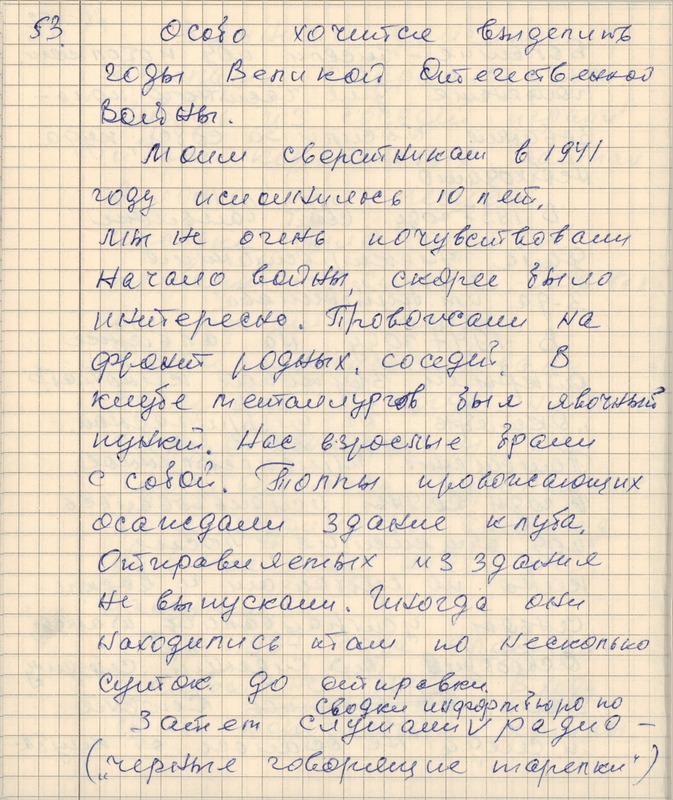 53.
Особо хочится выделить
годы Великой Отечественной
Войны.
Моим сверстникам в 1941
году исполнилось 10 лет.
Мы не очень почувствовали
начало войны, скорее было
интересно. Провожали на
фронт родных, соседей. В
клубе металлургов был явочный
пункт. Нас взрослые брали
с собой. Толпы провожающих
осаждали здание клуба.
Отправляемых из здания
не выпускали. Иногда они
находились там по несколько
суток до отправки.
сводки информбюро по
Затем слушали V радио –
(„черные говорящие тарелки")